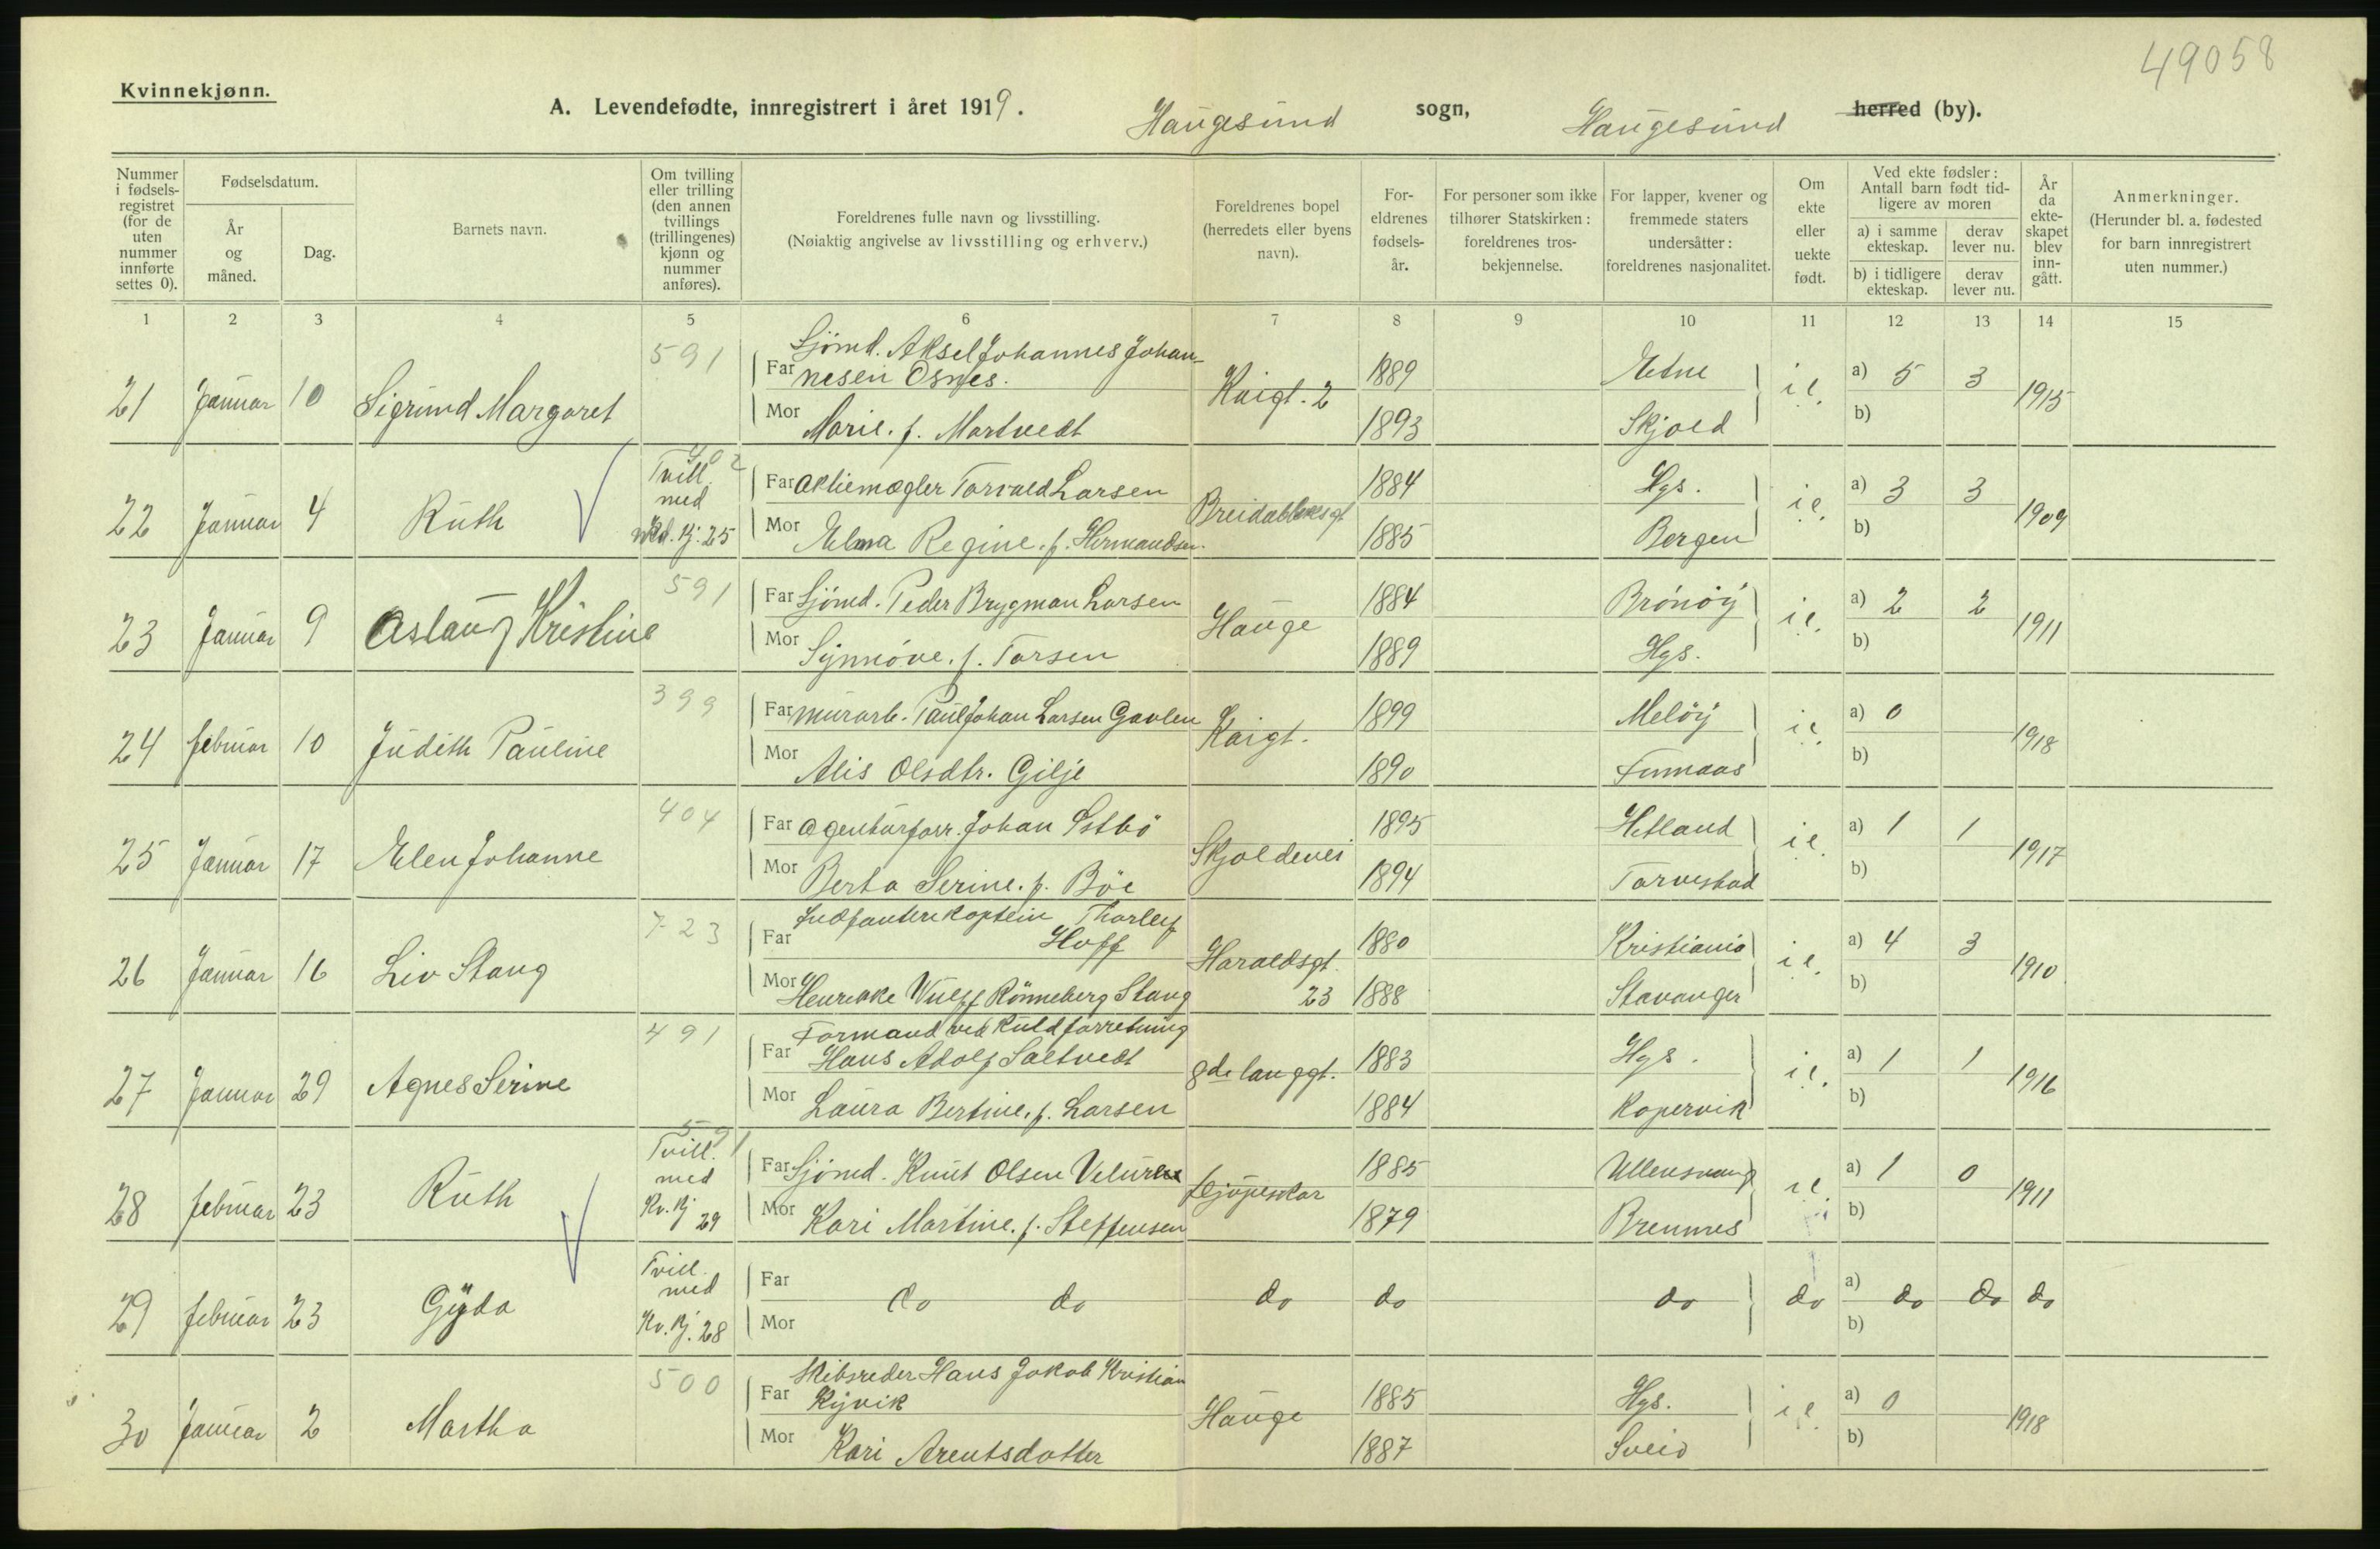 49058
Kvinnekjønn.
A. Levendefødte, innregistrert i året 1919. Haugesund sogn, Haugesund herred (by).
Nummer i fødsels-registret (for de uten nummer innførte settes 0). Fødselsdatum. År og måned. Dag. Barnets navn. Om tvilling eller trilling (den annen tvillings (trillingenes) kjønn og nummer anføres). Foreldrenes fulle navn og livsstilling. (Nøiaktig angivelse av livsstilling og erhverv.) Foreldrenes bopel (herredets eller byens navn). For-eldrenes fødsels-år. For personer som ikke tilhører Statskirken: foreldrenes tros-bekjennelse. For lapper, kvener og fremmede staters undersåtter: foreldrenes nasjonalitet. Om ekte eller uekte født. Ved ekte fødsler: Antall barn født tid-ligere av moren a) i samme ekteskap. derav lever nu. b) i tidligere ekteskap. derav lever nu. År da ekte-skapet blev inn-gått. Anmerkninger. (Herunder bl. a. fødested for barn innregistrert uten nummer.)
1 2 3 4 5 6 7 8 9 10 11 12 13 14 15
591 Sjømd. Aksel Johannes Johan-
21 Januar 10 Sigrund Margaret Far nesen Osnes. Kaigt. 2 1889 Etne i e. a) 5 3 1915
Mor Marie. f. Martvedt 1893 Skjold b)
402
22 Januar 4 Ruth Tvill. med Kj. 25 Far Aktiemægler Torvald Larsen Breidabliksgt 1884 Hgs. i e. a) 3 3 1909
Mor Elma Regine. f. Hermandsen. 1885 Bergen b)
591
23 Januar 9 Aslaug Kristine Far Sjømd. Peder Brygman Larsen Hauge 1884 Brönöy i e. a) 2 2 1911
Mor Synnöve. f. Torsen 1889 Hgs. b)
399
24 februar 10 Judith Pauline Far murarb. Paul Johan Larsen Gavlen Kaigt. 1899 Melöy i e a) 0 1918
Mor Alis Olsdtr. Gilje 1890 Finnaas b)
404
25 Januar 17 Elen Johanne Far Agenturforr. Johan Östbö Skjoldevei 1895 Hetland i e. a) 1 1 1917
Mor Berta Serine. f. Böe 1894 Torvestad b)
723 Indfanterikaptein Thorleif
26 Januar 16 Liv Stang Far Hoff Haraldsgt. 23 1880 Kristiania i e. a) 4 3 1910
Mor Henrikke Wulff Rönneberg Stang 1888 Stavanger b)
491 Formand ved Kuldforretning
27 Januar 29 Agnes Serine Far Hans Adolf Saltvedt gde langgt. 1883 Hgs. i e. a) 1 1 1916
Mor Laura Bertine. f. Larsen 1884 Kopervik b)
591
28 februar 23 Ruth Tvill. med Kv. Kj 29 Far Sjømd. Knut Olsen Veluren 1885 Ullensvang i e. a) 1 0 1911
Mor Kari Martine. f. Steffensen 1879 Bremnes b)
29 februar 23 Gyda Tvill. med Kv. Kj. 28 Far do do do do do do a) do do do
Mor b)
500 Skibsreder Hans Jakob Kristian
30 Januar 2 Martha Far Kyvik Hauge 1885 Hgs. i e a) 0 1918
Mor Kari Arentsdatter 1887 Sveio b)